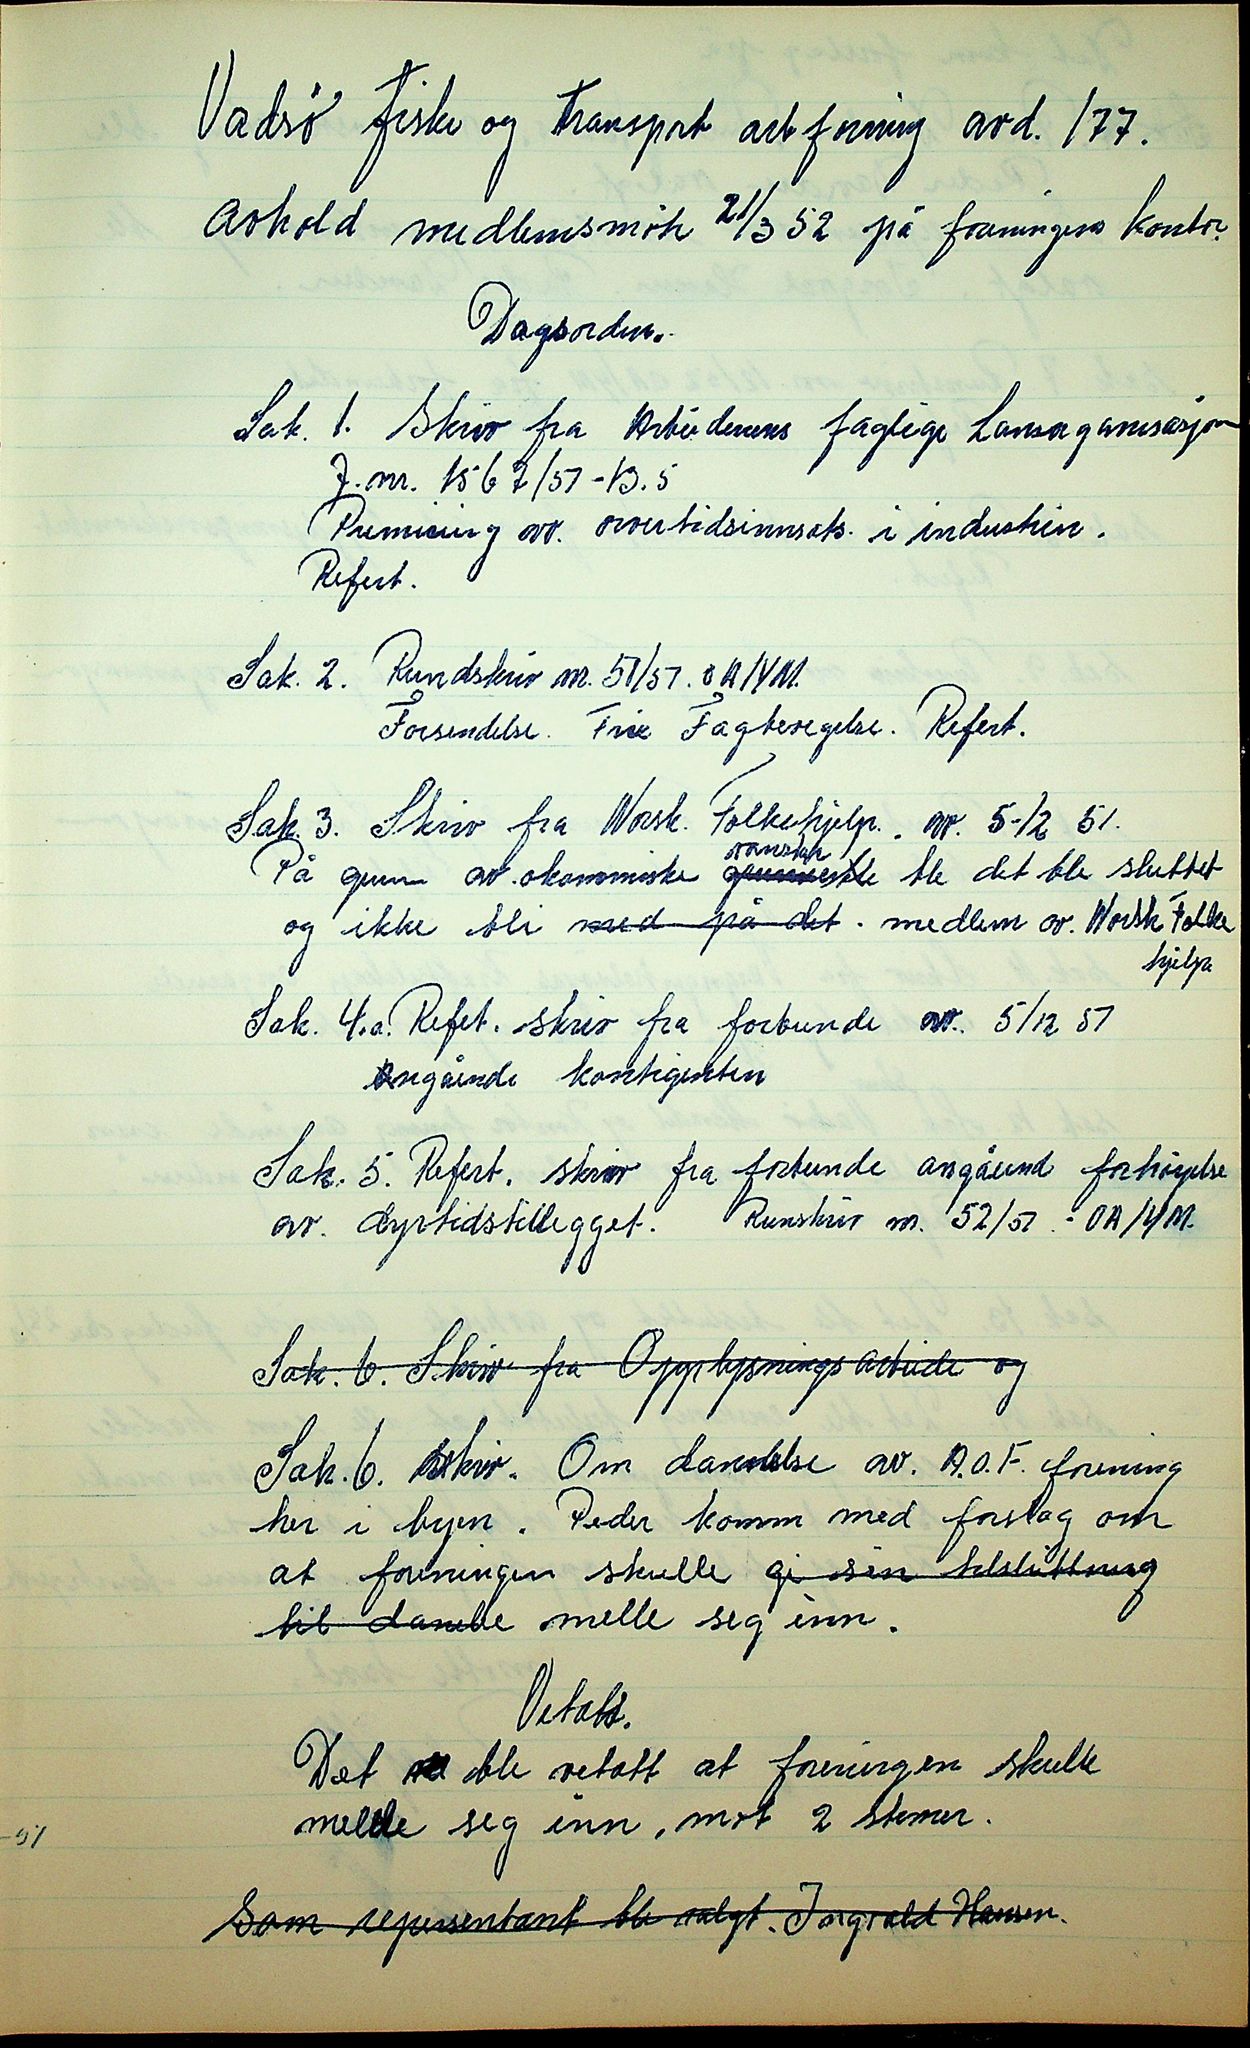 Vadsö fiske og Transport arb forning avd. 177.
avhold medlemsmöte 21/3 52 på foreningens kontor.
Dagsorden.
Sak. 1. Skriv fra Arbeidernes faglige Lansorganisasjon
J. nr. 1567/51 - B. 5
Premiering av. overtidsinnsats. i industrien.
Refert.
Sak. 2. Rundskriv nr. 51/51. OA/YM.
Forsendelse. Frie Fagbevegelse. Refert.
Sak. 3. Skriv fra Norsk. Folkehjelp. av. 5-12 51.
vansker
På grunn av. okonomiske ble det ble sluttet
og ikke bli med på det. medlem av. Norsk Folke
hjelp
Sak. 4.a. Refet. skriv fra forbunde av. 5/12 51
Angående kontigenten
Sak. 5. Refert. skriv fra forbunde angåend forhöyelse
av. dyrtidstillegget. Runskriv nr. 52/51 - OA/YM.
Sak. 6. Skriv fra Opplysnings arbeide og
Sak. 6. Skriv. Om dannelse av. A.O.F. forening
her i byen. Peder komm med forslag om
at foreningen skulle gi sin tilsluttning
til danelse melle seg inn.
Vetatt.
Det ble vetatt at foreningen skulle
melle seg inn, mot 2 stemer.
Som repersentant ble valgt. Ingvald Hansen.
-51